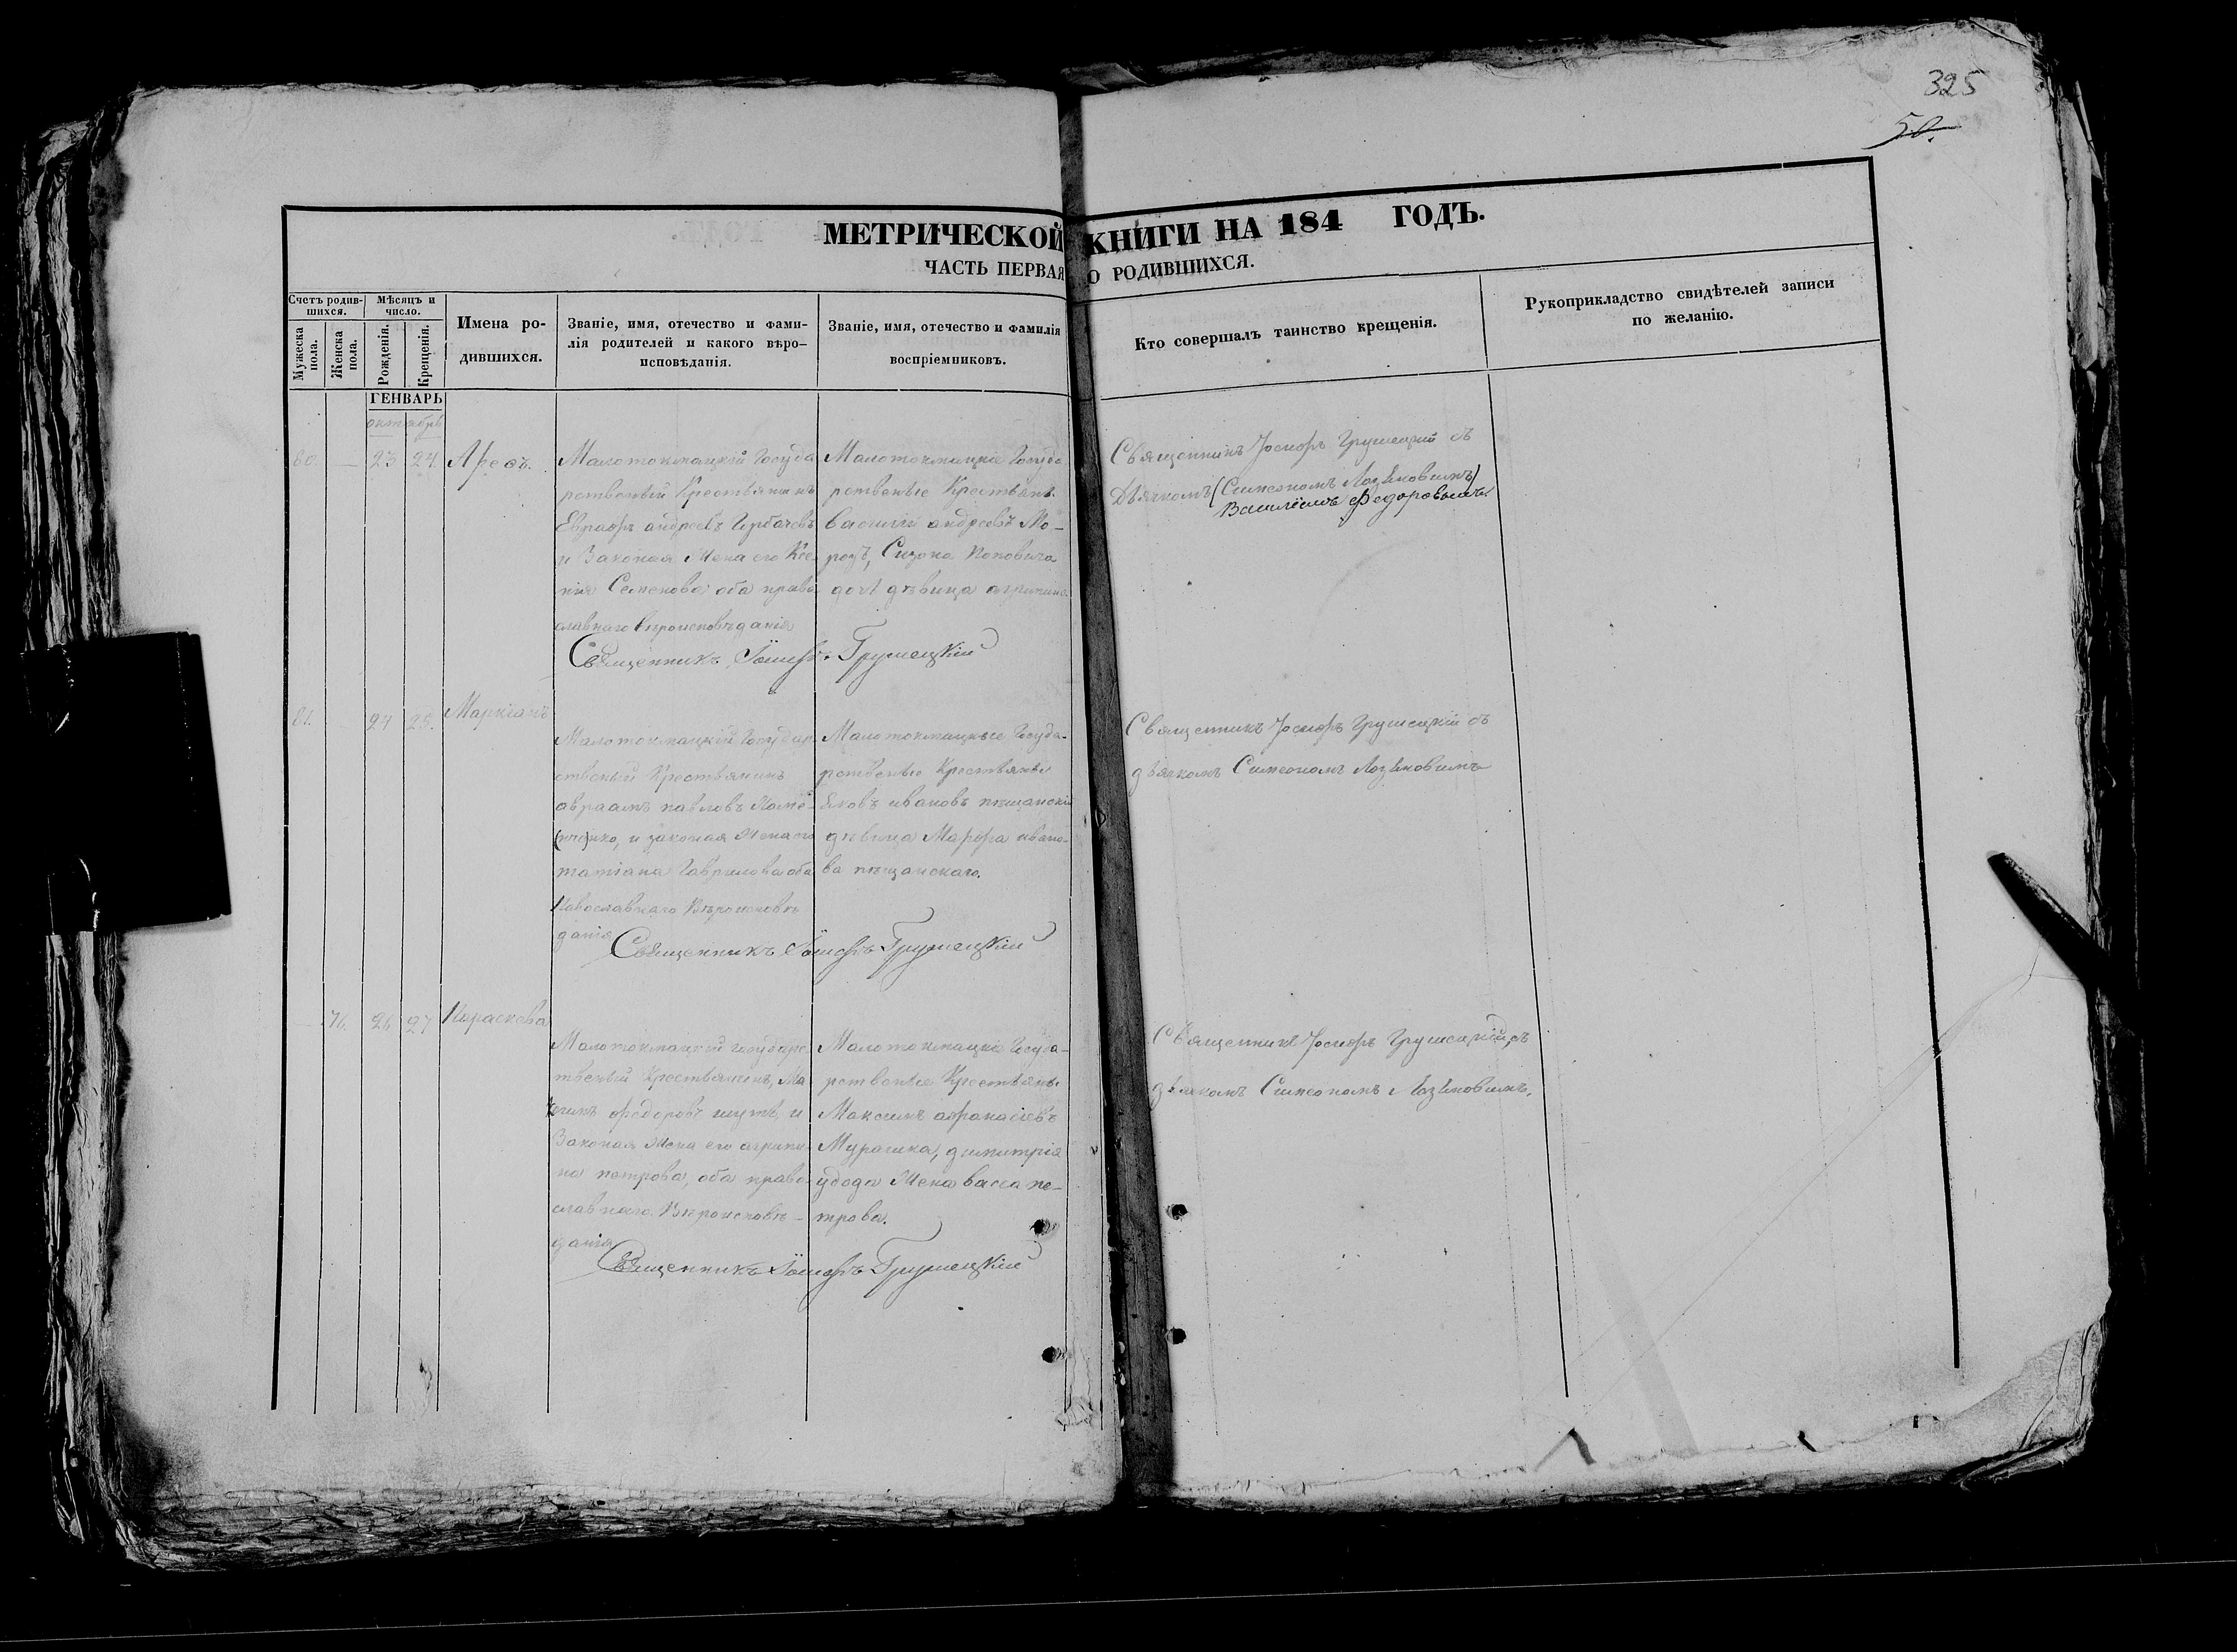 325
50.
МЕТРИЧЕСКОЙ КНИГИ НА 184 ГОДЪ.
ЧАСТЬ ПЕРВАЯ О РОДИВШИХСЯ.
Счетъ родив-
шихся.
Мужеска
пола.
Женска
пола.
Мѣсяцъ и
число.
Рожденія.
Крещенія.
Имена ро-
дившихся.
Званіе, имя, отечество и фами-
лія родителей и какого вѣро-
исповѣданія.
Званіе, имя, отечество и фамилія
воспріемниковъ.
Кто совершалъ таинство крещенія.
Рукоприкладство свидѣтелей записи
по желанію.
ГЕНВАРЬ
октябрь
80. — 23 24 Арефъ.
Малотокмацкій Госуда
рственый Крестьянинъ
Евграфъ андреевъ Горбачевъ
и Законая Жена его
нія Семенова оба право
славнаго вѣроисповѣданія
Священникъ Іосифъ Грушецкій
Малотокмацкіе Госуда
рственые Крестьяне
василій андреевъ Мо-
розъ, Сизона Поповича
доч дѣвица агрипина
Священникъ Іосифъ Грушецкій съ
Дьячкомъ (Симеономъ Лозѣновимъ)
Василіемъ Федоровымъ
81. 24 25. Маркіанъ
Малотокмацкій Государ
ственый Крестьянинъ
авраамъ павловъ
нко, и законая Жена его
татіана Гаврилова оба
Павославнаго Вѣроисповѣ
данія
Священникъ Іосифъ Грушецкій
Малотокмацкые Госуда-
рственые Крестьяны
Яковъ ивановъ пѣщанскій
дѣвица Марфа ивано-
ва пѣщанскаго.
Священникъ Іосифъ Грушецкій съ
дьячкомъ Симеономъ Лозѣновимъ
— 76. 26 27 Параскева
Малотокмацкій государс
твеный Крестьянинъ, Ма
ксимъ федоровъ шутъ и
Законая Жена его агрипи
на петрова, оба право-
славнаго Вѣроисповѣ-
данія
Священникъ Іосифъ Грушецкій
Малотокмацкіе Госуда-
рственые Крестьяны
Максимъ афанасіевъ
Мурашка, димитрія
удода Жена васса пе-
трова.
Священникъ Іосифъ Грушецкій, съ
дьячкомъ Симеономъ Лозѣновимъ.